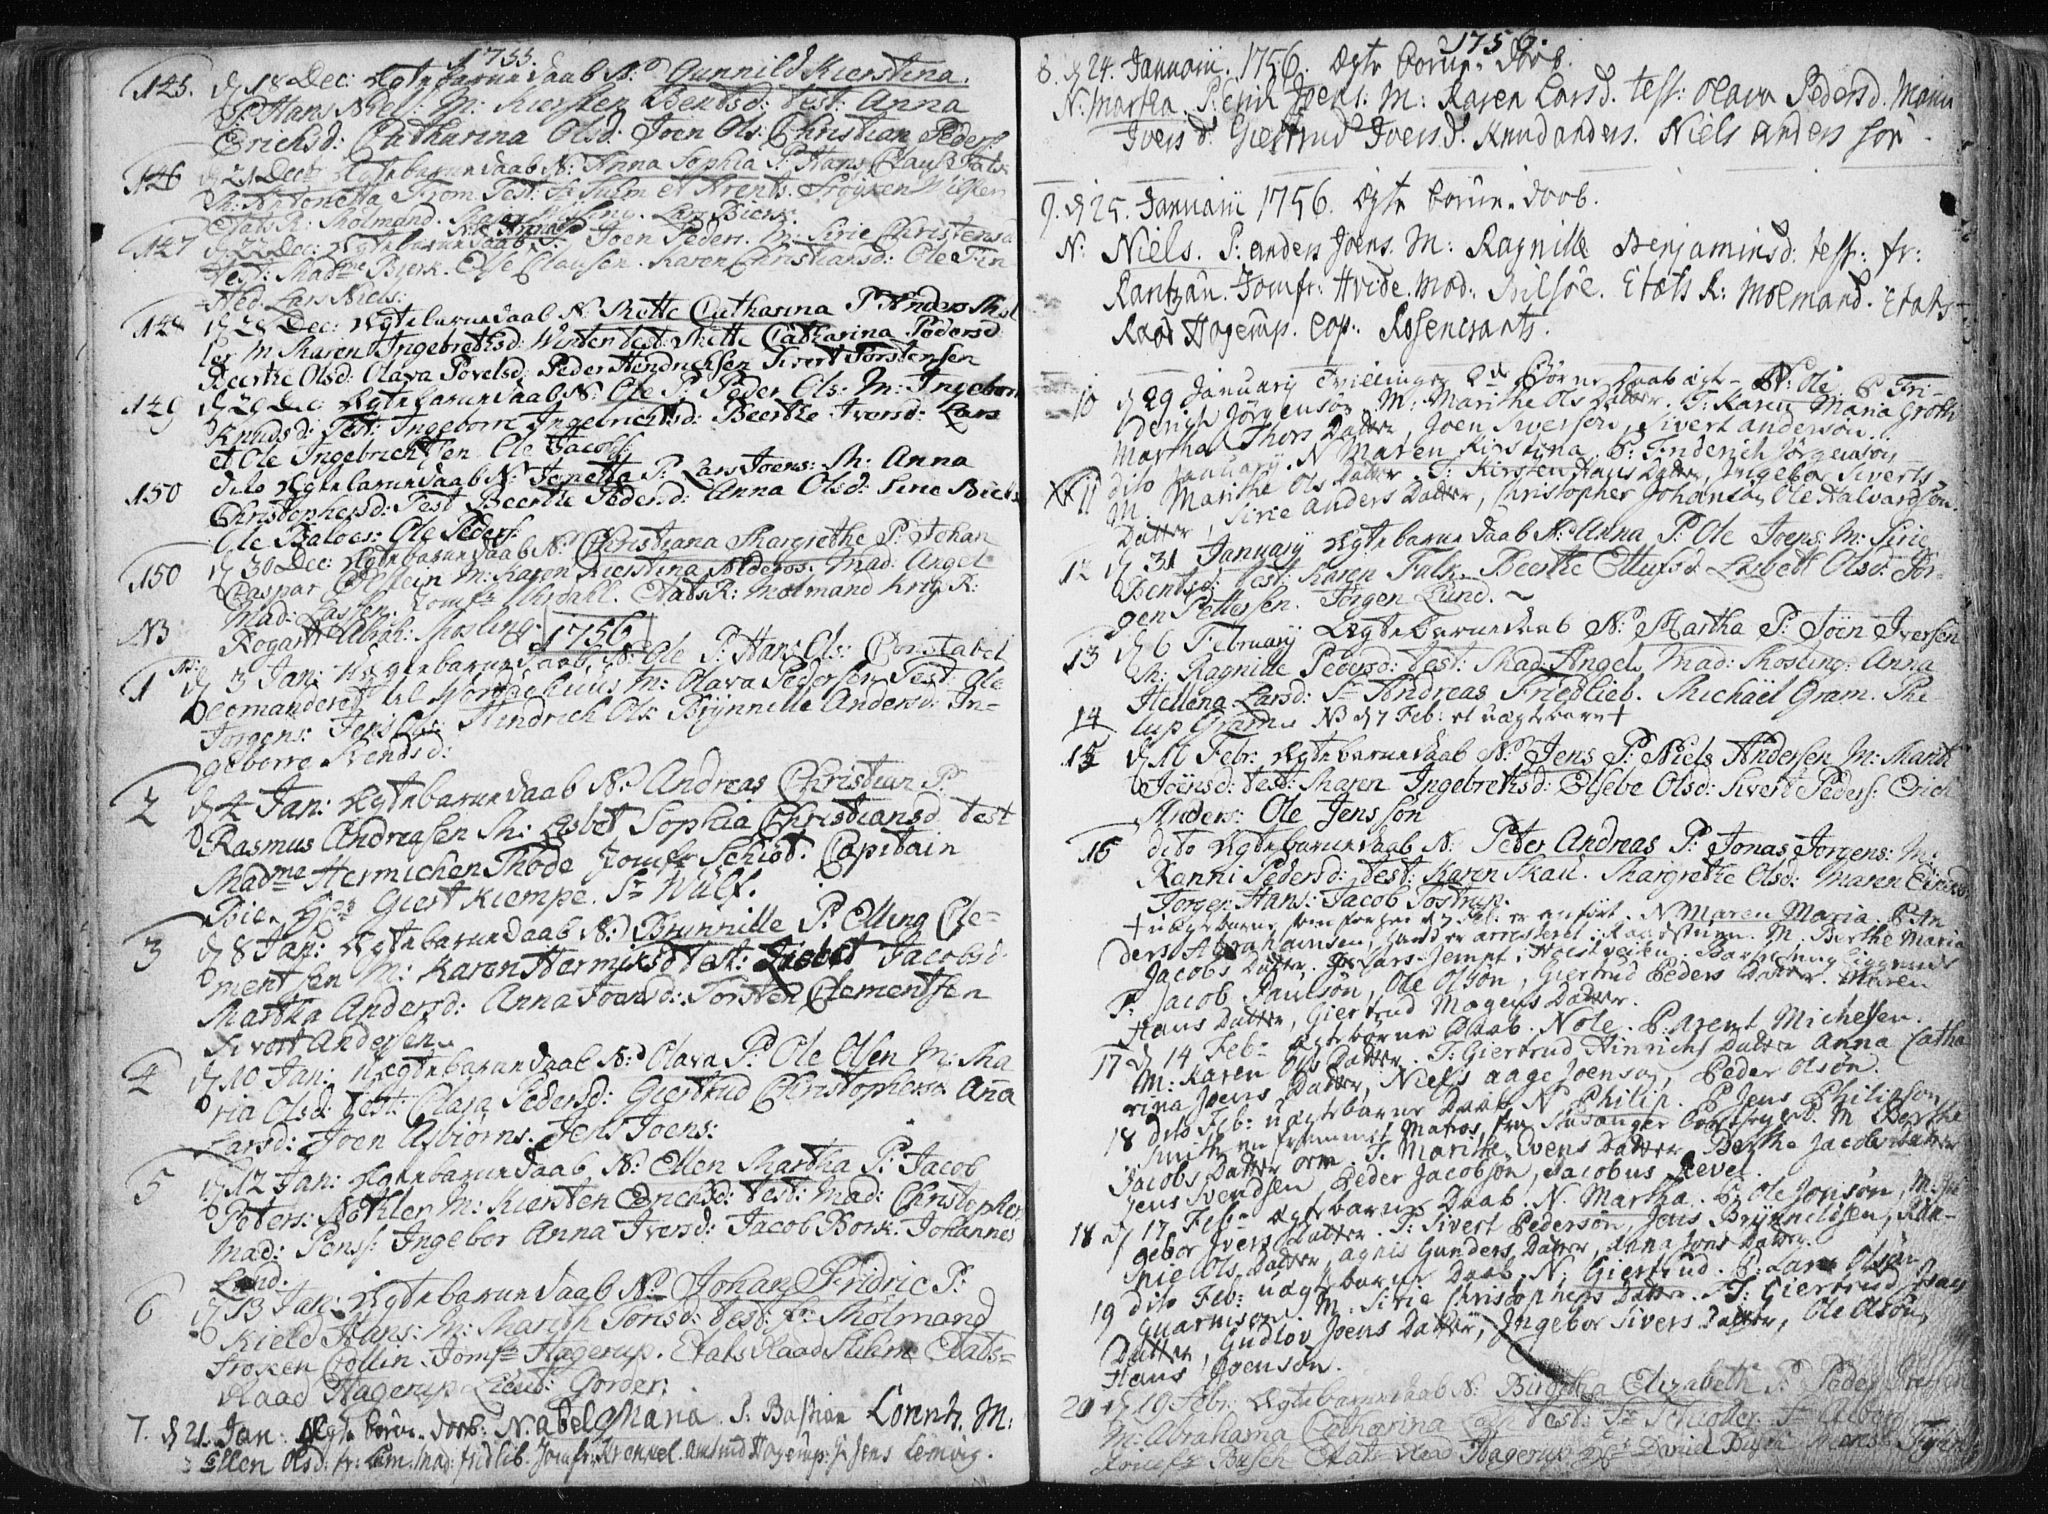 1755.
145. d 18 Dec: Ægtebarnedaab N: Gunnild Kierstina.
P: Hans Niels: M: Kiersten Bentsd: Test: Anna
Erichsd: Catharina Olsd: Joen Ols: Christian Peders
146 d 21 Dec: Ægtebarnedaab N: Anna Sophia P: Hans Claus:
M: Antonetta From Test: Fr Suhm et Arents. Frøiken
Etats R: Molmand. Lars Bierk.
147 d 22 Dec: Ægtebarnedaab N: Joen Peders. M: Sirie Christensd
Test: Madme Bierk. Else Clausen. Karen Christiansd: Ole Fin
Hed. Lars Niels:
148 d 28 Dec: Ægtebarnedaab N: Mette Catharina P: Anders Møl
ler M: Maren Ingebrethsd: Winter Test: Mette Catharina Pedersd
Beerthe Olsd: Olava Povelsd: Peder Hendrichsen Sivert Torstensen
149 d 29 Dec: Ægtebarnedaab N: Ole P: Peder Ols: M: Ingeborr
Knudsd: Test: Ingeborr Ingebrichtsd: Beerthe Iversd: Lars
et Ole Ingebrichtsen Ole Jacobs
150 dito Ægtebarnedaab N: Jonetta P: Lars Joens: M: Anna
Christophersd: Test Beerthe Pedersd: Anna Olsd: Sirie
Ole Baloes: Ole Peders
150 d 30 Dec: Ægtebarnedaab N: Christiana Margrethe P: Johan
Caspar M: Karen Kierstina Alderos. Mad: Angel
Mad: Lassen. Jomfr Etats R: Molmand Krigs R:
NB Rogart Abrah: Mosling.
1756
1 d 3 Jan: Ægtebarnedaab N: Ole P: Hans Ols: Constabel
comanderet til M: Olava Pedersen Test: Ole
Jørgens: Jens Hendrich Ols: Brynnille Andersd: In-
geborre Svendsd:
2 d 4 Jan: Ægtebarnedaab N: Andreas Christian P:
Rasmus Andreasen M: Lisbet Sophia Christiansd Test
Madme Hermichen Thode Jomfr Schiøt. Capitain
Bie, Hr Giert Kiempe. Sr Wulf.
3 d 8 Jan: Ægtebarnedaab N: Brunnille P: Elling Cle-
mentsen M: Karen Hermiksd Test: Lisbet Jacobsd
Martha Andersd: Anna Joensd: Torsten Clementsen
Sivert Andersen
4 d 10 Jan: Uægtebarnedaab N: Olava P: Ole Olsen M: Ma
ria Olsd: Test: Clara Pedersd: Giertrud Christophersd Anna
Larsd: Joen Asbiørns. Jens Joens:
5 d 12 Jan: Ægtebarnedaab N: Ellen Martha P: Jacob
Peters: Nøthler M: Kiersten Erichsd: Test: Mad: Christopher
Mad: Penss. Ingebor Anna Iversd: Jacob Bork. Johannes
Lund.
6 d 13 Jan: Ægtebarnedaab N: Johan Fridric P:
Kield Hans: M: Marith Tonsd: Test: Fr Molmand
Frøken Collin. Jomfr Hagerup. Etats Raad Suhm Etats-
Raad Hagerup Lieut: Gorder:
7. d 21. Jan: Ægte børne-doob: N: abel Maria. P. Bastian Lorentz. M:
Ellen Olsd: fr: Lem. Mad: fridlib. Jomfr Krenkel. Hagerup: Jens Lemvig.
1756.
8. d 24. Januarii. 1756. Ægte børne-doob.
N: Martha. P: Erik Joens. M: Karen Larsd. test: Olava Pedersd. Marin
Ivers d. Giertrud Iversd. Knud anders. Niels anders søn.
9. d 25. Januarii 1756. Ægte børne-doob.
N: Niels. P: anders Joens. M: Ragnille Benjaminsd: test: fr:
Rantzau. Jomfr: Hvide. Mad: Bilsøe. Etats R: Molmand. Etats-
Raad Hagerup. Cop: Rosencrants.
10 d 29 January Tvillinger 2de Børne Daab ægte N: Ole P Fri-
derich Jørgensøn M: Marithe Ols Datter. T: Karen Maria Groth
Martha Thors Datter, Joen Siversen, Sivert anderson.
11 dito January. N Maren Kirstina. P. Friderich Jørgensøn
M. Marithe Ols Datter. T: Kirsten Hans Datter, Ingebor Siverts
Datter, Sirie Anders Datter, Christopher Johansøn, Ole Halvardsøn.
12 d 31 January Ægtebarnedaab N: Anna P: Ole Joens: M: Sirie
Bentsd: Test: Karen Falk. Beerthe Ellufsd Lisbett Olsd: Jør-
gen Pettersen. Jørgen Lund.
13 d 6 February Ægtebarnedaab N: Martha P: Joen Iversen
M: Ragnille Pedersd: Test: Mad: Angel, Mad: Mosling: Anna
Hellena Larsd: Sr Andreas Friedlieb. Michaël Gram. Phi-
14 lup Gram NB d 7 Feb: et uægtebarn +
15 d 10 Febr: Ægtebarnedaab N: Jens P: Niels Andersen M: Marit
Joensd: Test: Maren Ingebrethsd: Elsebe Olsd: Sivert Peders: Erich
Anders: Ole Jenssøn
16 dito Ægtebarnedaab N: Peter Andreas P: Jonas Jørgens: M:
Ranni Pedersd: Test: Karen Skau. Margrethe Olsd: Maren
Jørgen Hans: Jacob Tostrup.
+ uægtebarn som forhen d 7 Feb: er anført. N Maren Maria. P. An
ders Abrahamsen, hand er arresteret i Raadstuen. M: Berthe Maria
Jacobs Datter.
F: Jacob Paulsøn, Ole Olsøn, Giertrud Peders Datter. Maren
Hans Datter, Giertrud Mogens Datter.
17 d 14 Feb: ægtebørne Daab. N Ole. P: Arent Michelsen.
M: Karen Ols Datter. T: Giertrud Hinrichs Datter Anna Catha
rina Joens Datter, Niels aage Joensøn, Peder Olsøn.
18 dito Feb: uægtebarne Daab N Philip. P Jens Philipsøn
Smith en fremmet Matros fra Stavanger M Berthe
Jacobs Datter T. Marithe Evens Datter Berthe Jacobs Datter
Jens Svendsen Peder Jacobsøn, Jacobus Revel.
18 d 17 Feb: ægtebarns Daab. N: Martha. P: Ole Jonsøn, M: In
gebor Ivers Datter. T: Sivert Pedersøn, Jens Brynnelsen, Ran-
nie Ols Datter, agnis Gunders Datter, Anna Jons Datter.
19 dito Feb: uægtebarne Daab. N: Giertrud. P: Lars Olsøn
M: Sirie Christophers Datter. T: Giertrud Isacs
Datter, Gudlov Joens Datter, Ingebor Sivers Datter, Ole Olsøn,
Hans Joensøn.
20 d 19 Febr: Ægtebarnedaab N: Birgitha Elizabeth P: Peder
M: Abrahama Catharina Test: Sr Schiøtter. Sr
Jomfr Busch Etats Raad Hagerup Hr David